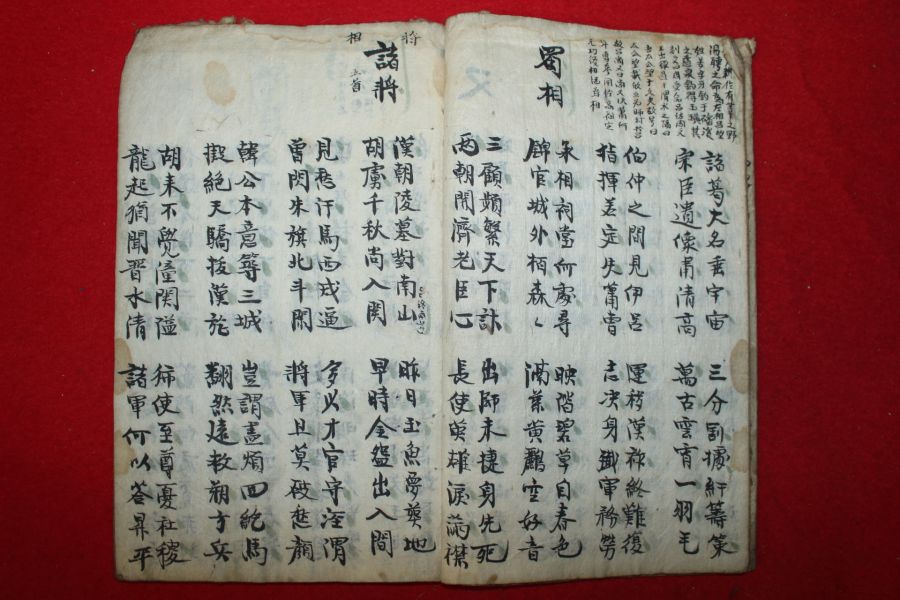 耕於有莘之野
湯聘之命爲左相呂望
諸葛大名垂宇宙
宗臣遺像肅清高
三分割據紆籌策
萬古雲霄一羽毛
伯仲之間見伊呂
指揮若定失蕭曺
運移漢祚終難復
志决身殲軍務勞
蜀相
丞相祠堂何處尋
錦官城外栢森〻
映階碧草自春色
滿葉黃鸝空好音
三顧頻繁天下計
兩朝開濟老臣心
出師未捷身先死
長使英雄淚滿襟
將相
諸將
五首
漢朝陵墓對南山
胡虜千秋尚入関
昨日玉魚夢葬地
早時金盌出人間
見愁汗馬西戎逼
曾閃朱旗北斗閑
多少才官守涇渭
將軍且莫破愁顏
韓公本意築三城
擬絶天驕拔漢旌
豈謂盡煩回紇馬
翻然遠救朔方兵
胡來不覺潼関隘
龍起猶聞晋水清
獨使至尊憂社稷
諸軍何以答昇平